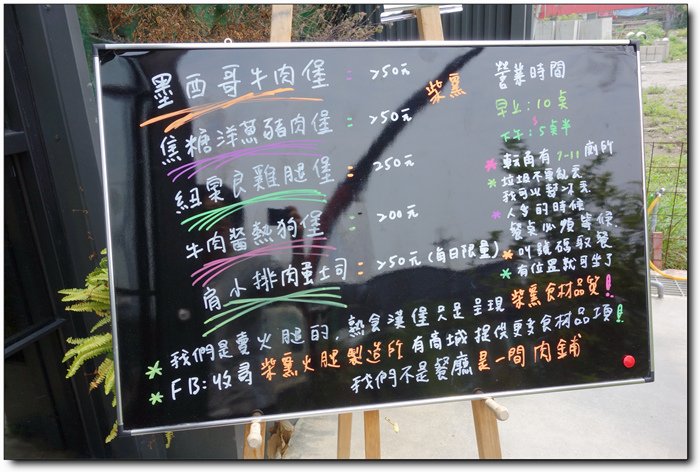 墨西哥牛肉堡 : 250元
焦糖洋蔥豬肉堡 : 250元
紐奧良雞腿堡 : 250元
牛肉醬熱狗堡 : 200元
肩小排肉蛋土司 : 250元(每日限量)
柴薰
營業時間
早上:10点
下午:5点半
* 轉角有7-11廁所
* 垃圾不要亂丟
* 人多的時候
餐点必須等候.
* 叫號碼取餐
* 有位置就可坐了
* 我們是賣火腿的, 熱食漢堡只是呈現 柴薰食材品質!
* FB:收尋 柴薰火腿製造所 有商城提供更多食材品項!
我們不是餐廳 是一間肉鋪